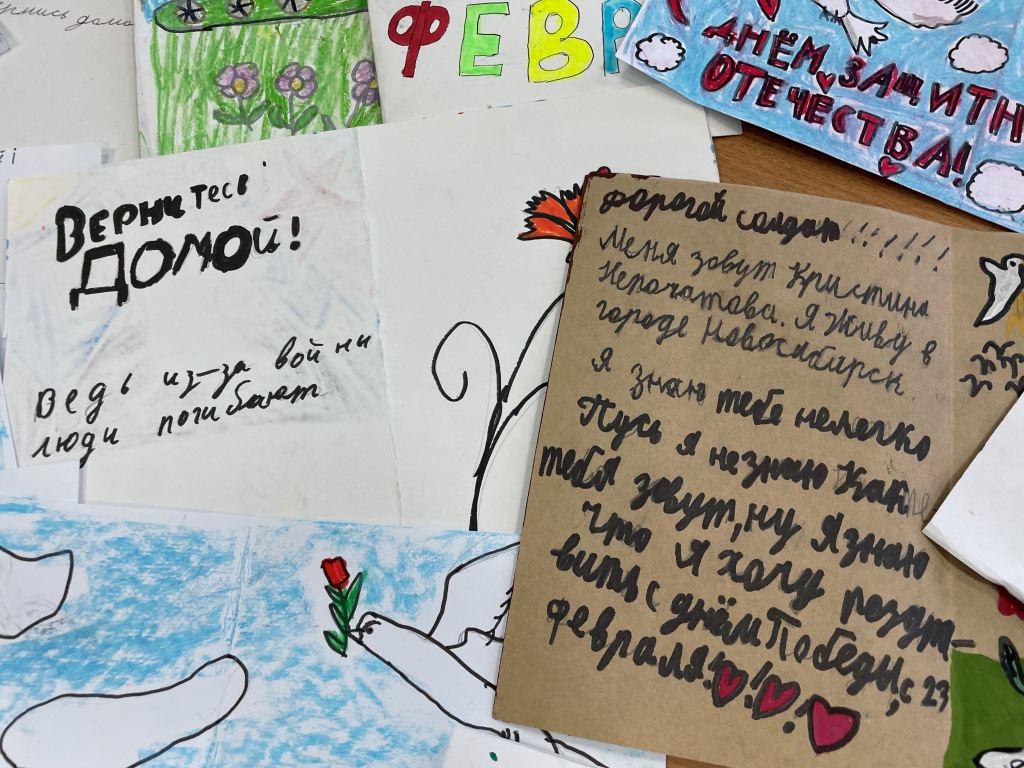 домо
ФЕВР
ДНЁМ ЗАЩИТН
ОТЕЧЕСТВА!
Вернитесь
ДОМОЙ!
Ведь из-за войни
люди погибают
Дорогой солдат!!!!!!
Меня зовут Кристина
Непочатова. Я Живу в
городе Новосибирск.
Я знаю тебе нелегко
Пусь я незнаю Как
тебя зовут, ну Я знаю
что Я хочу роздт-
вить с днём Победы, с 23
февраля!!!